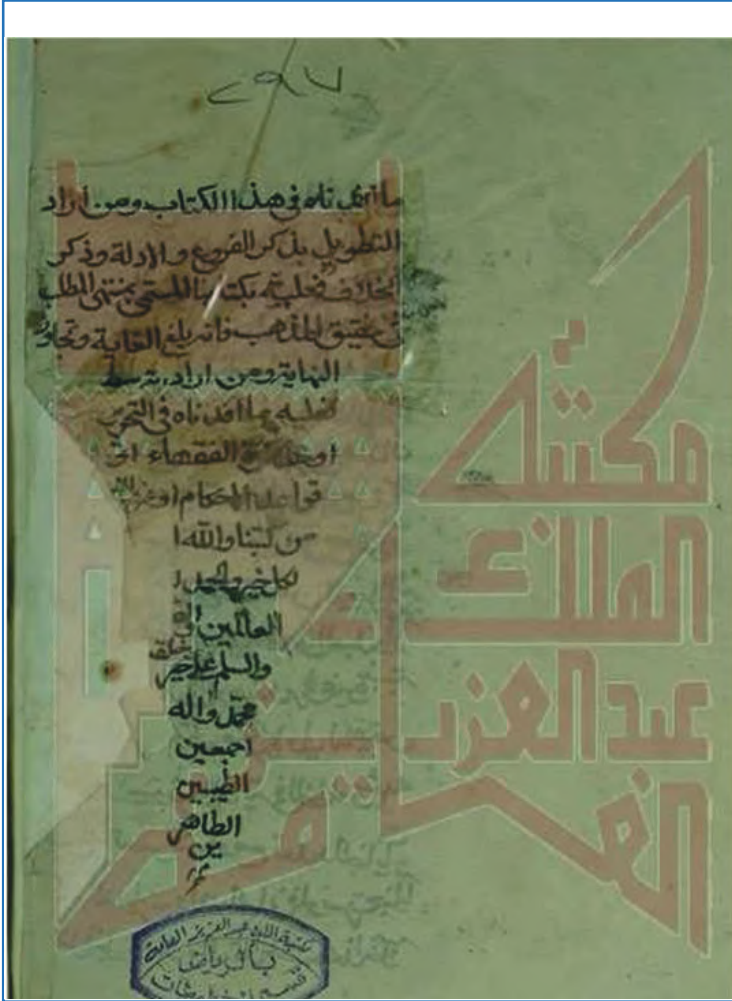 ٢٩٧
ما أفدناه في هذا الكتاب ومن اراد
التطويل بذكر الفروع والادلة وذكر
الخلاف فعليه بكتابنا المسمى بمنتهى المطلب
في تحقيق المذهب فانه بلغ الغاية وتجاوز
النهاية ومن اراد التوسط
فعليه بما افدناه في التحرير
او تذكرة الفقهاء او
قواعد الاحكام او غير ذلك
من كتبنا والله
لكل خير والحمد
العالمين
والسلم على خير
محمد واله
اجمعين
الطيبين
الطاهر
ين
مكتبة
الملك
عبد العزيز
العامة
مكتبة الملك عبد العزيز العامة
بالرياض
قسم المخطوطات